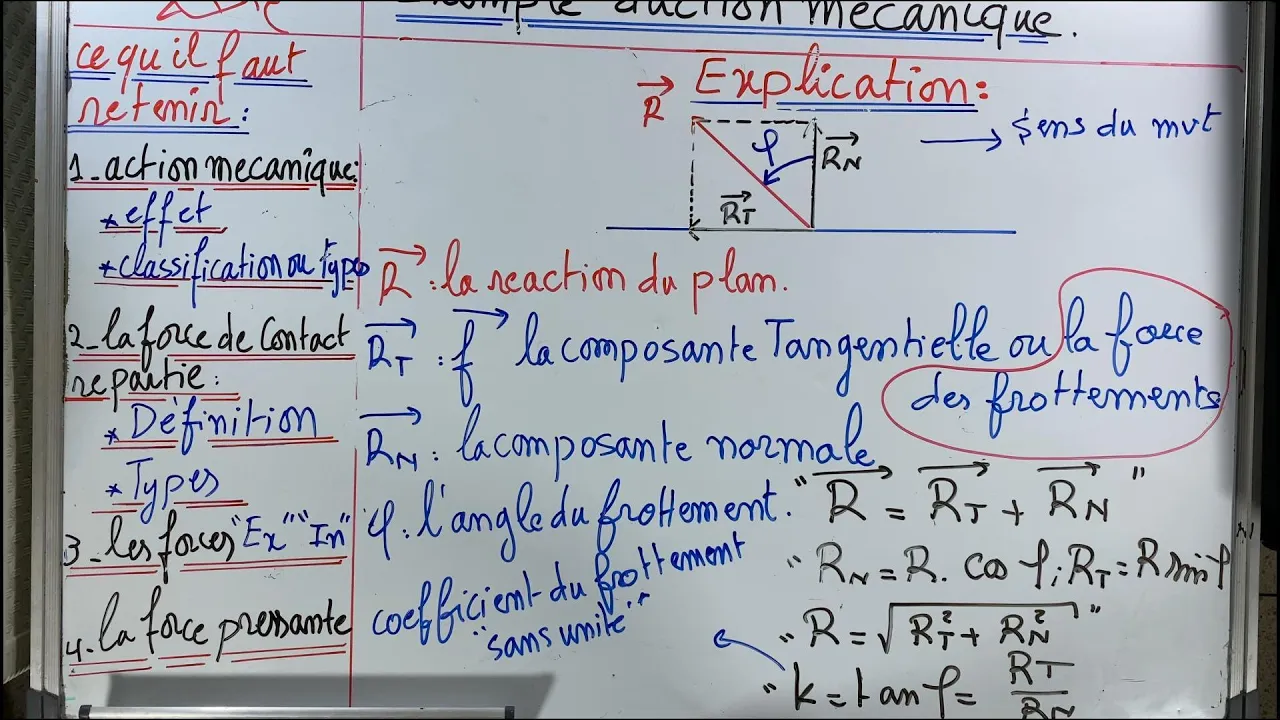 Exemple d'action mecanique.
ce qu'il faut
retenir:
1_ action mecanique:
* effet
* classification ou Types
2_ la force de Contact
repartie:
* Définition
* Types
3_ les forces "Ex" "In"
4_ la force pressante
Explication:
R
φ
RN
RT
→ Sens du mvt
R : la reaction du plan.
RT : f la composante Tangentielle ou la force
des frottements
RN : la composante normale
φ : l'angle du frottement.
coefficient du frottement
"sans unité"
"R = RT + RN"
"RN = R. cos φ ; RT = R sin φ
"R = √RT² + RN²"
"k = tan φ = RT/RN